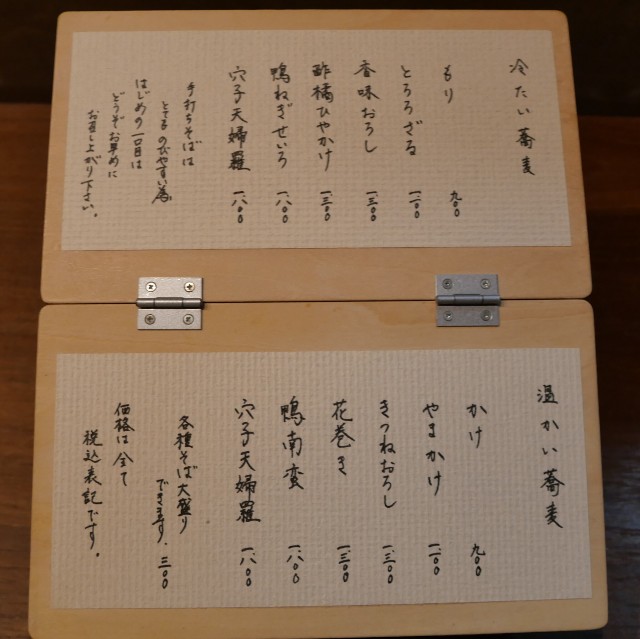 冷たい蕎麦
もり 九〇〇
とろろざる
香味おろし 一、三〇〇
酢橘ひやかけ 一、三〇〇
鴨ねぎせいろ 一、八〇〇
穴子天婦羅 一、八〇〇
手打ちそばは
とてものびやすい為
はじめの一口目は
どうぞお早めに
お召し上がり下さい。
温かい蕎麦
かけ 九〇〇
やまかけ
きつねおろし 一、三〇〇
花巻き 一、三〇〇
鴨南蛮 一、八〇〇
穴子天婦羅 一、八〇〇
各種そば大盛り
できます。三〇〇
価格は全て
税込表記です。